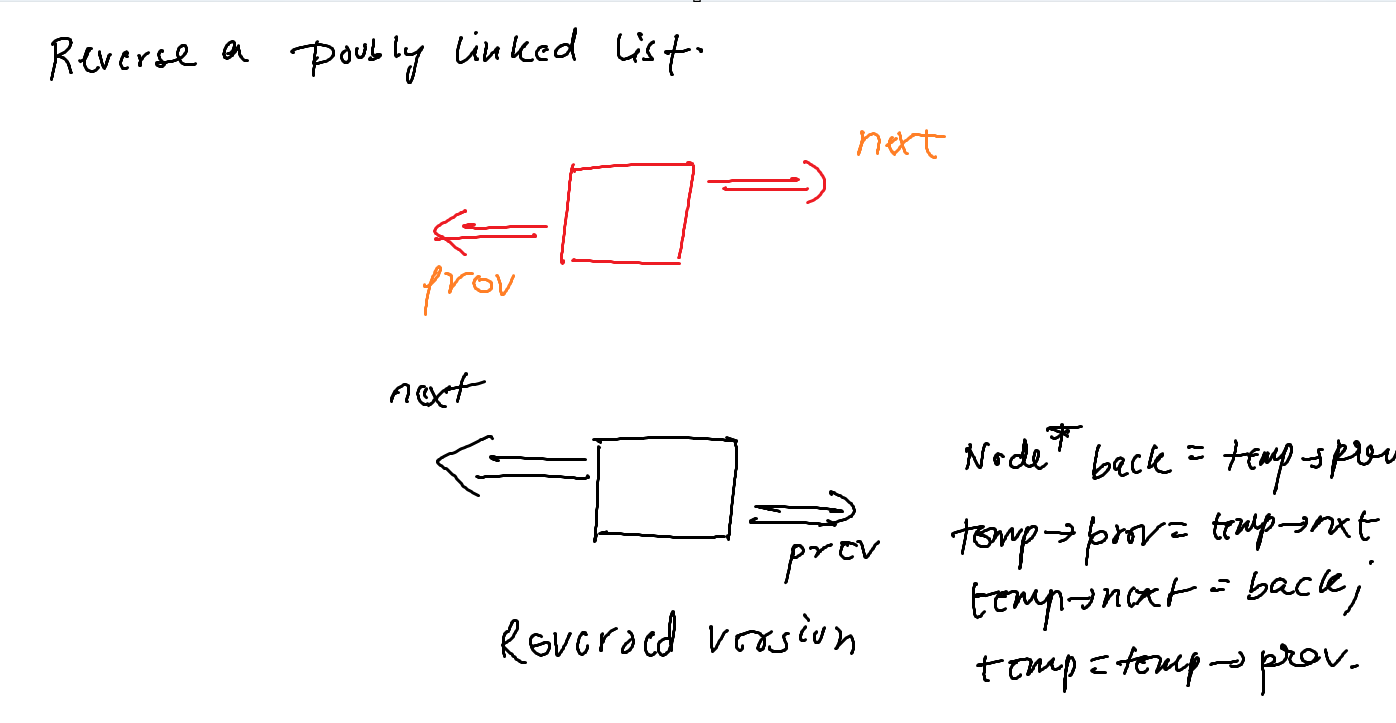 Reverse a Doubly linked list.
next
prev
next
prev
Reversed version
Node* back = temp→prev
temp→prev = temp→nxt
temp→next = back;
temp = temp→prev.